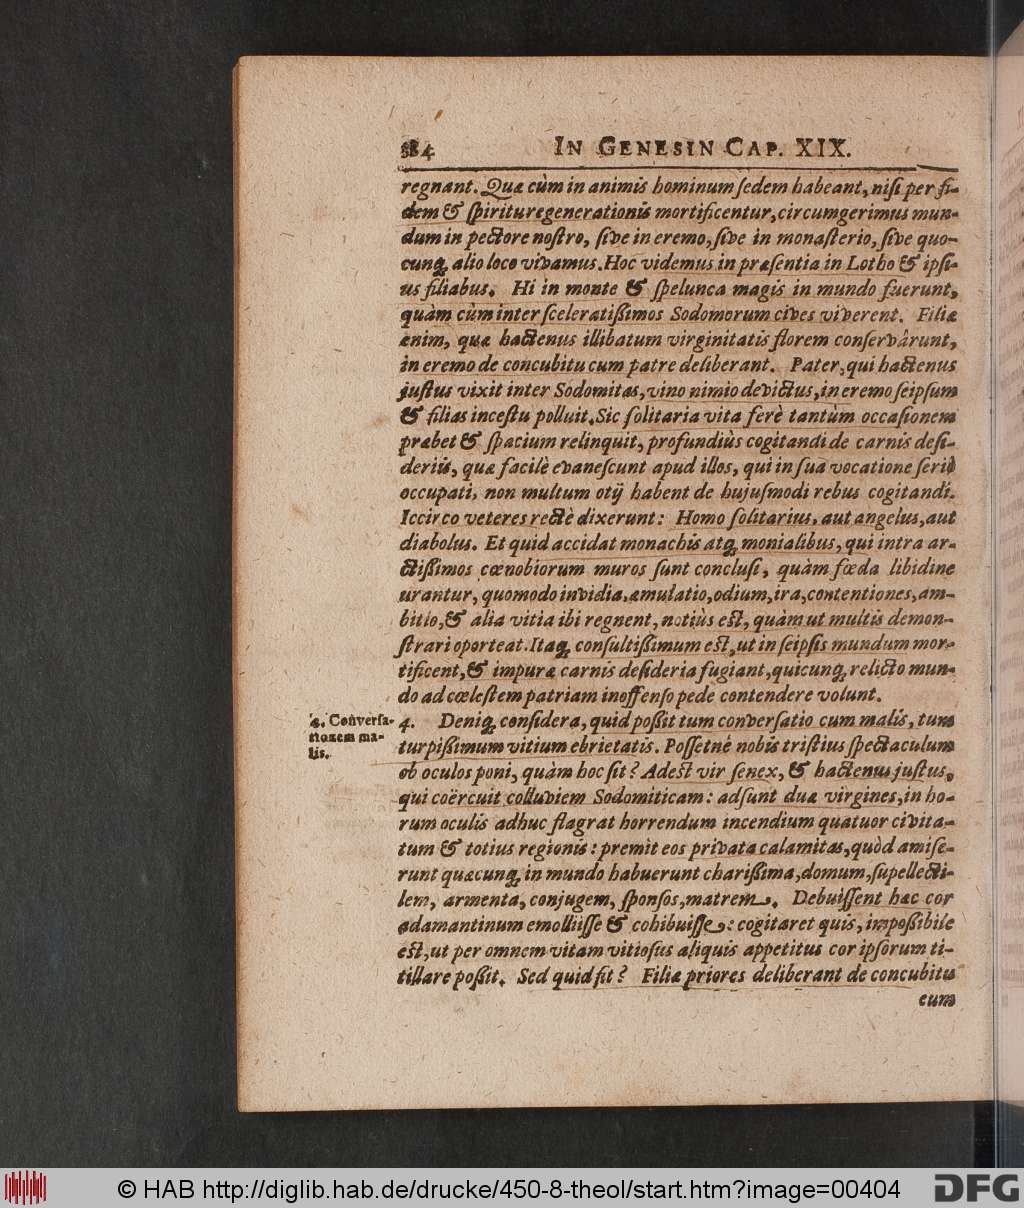 384 IN GENESIN CAP. XIX.
regnant. Quæ cùm in animis hominum ſedem habeant, niſi per fi-
dem & ſpiritu regenerationis mortificentur, circumgerimus mun-
dum in pectore noſtro, ſive in eremo, ſive in monaſterio, ſive quo-
cunq; alio loco vivamus. Hoc videmus in præſentia in Lotho & ipſi-
us filiabus. Hi in monte & ſpelunca magis in mundo fuerunt,
quàm cùm inter ſceleratißimos Sodomorum cives viverent. Filiæ
enim, quæ hactenus illibatum virginitatis florem conſervârunt,
in eremo de concubitu cum patre deliberant. Pater, qui hactenus
juſtus vixit inter Sodomitas, vino nimio devictus, in eremo ſeipſum
& filias inceſtu polluit. Sic ſolitaria vita ferè tantùm occaſionem
præbet & ſpacium relinquit, profundiùs cogitandi de carnis deſi-
deriis, quæ facilè evaneſcunt apud illos, qui in ſua vocatione ſeriò
occupati, non multum otij habent de hujuſmodi rebus cogitandi.
Iccirco veteres rectè dixerunt: Homo ſolitarius, aut angelus, aut
diabolus. Et quid accidat monachis atq; monialibus, qui intra ar-
ctißimos cœnobiorum muros ſunt concluſi, quàm fœda libidine
urantur, quomodo invidia, æmulatio, odium, ira, contentiones, am-
bitio, & alia vitia ibi regnent, notiùs eſt, quàm ut multis demon-
ſtrari oporteat. Itaq; conſultißimum eſt, ut in ſeipſis mundum mor-
tificent, & impuræ carnis deſideria fugiant, quicunq; relicto mun-
do ad cœleſtem patriam inoffenſo pede contendere volunt.
4. Converſa-
tionem ma-
lis.
4. Deniq; conſidera, quid poßit tum converſatio cum malis, tum
turpißimum vitium ebrietatis. Poſſetne nobis triſtius ſpectaculum
ob oculos poni, quàm hoc ſit? Adeſt vir ſenex, & hactenus juſtus,
qui coërcuit colluviem Sodomiticam: adſunt duæ virgines, in ho-
rum oculis adhuc flagrat horrendum incendium quatuor civita-
tum & totius regionis: premit eos privata calamitas, quòd amiſe-
runt quæcunq; in mundo habuerunt charißima, domum, ſupellecti-
lem, armenta, conjugem, ſponſos, matrem. Debuiſſent hæc cor
adamantinum emolliiſſe & cohibuiſſe: cogitaret quis, impoßibile
eſt, ut per omnem vitam vitioſus aliquis appetitus cor ipſorum ti-
tillare poßit. Sed quid fit? Filiæ priores deliberant de concubitu
cum
© HAB http://diglib.hab.de/drucke/450-8-theol/start.htm?image=00404
DFG